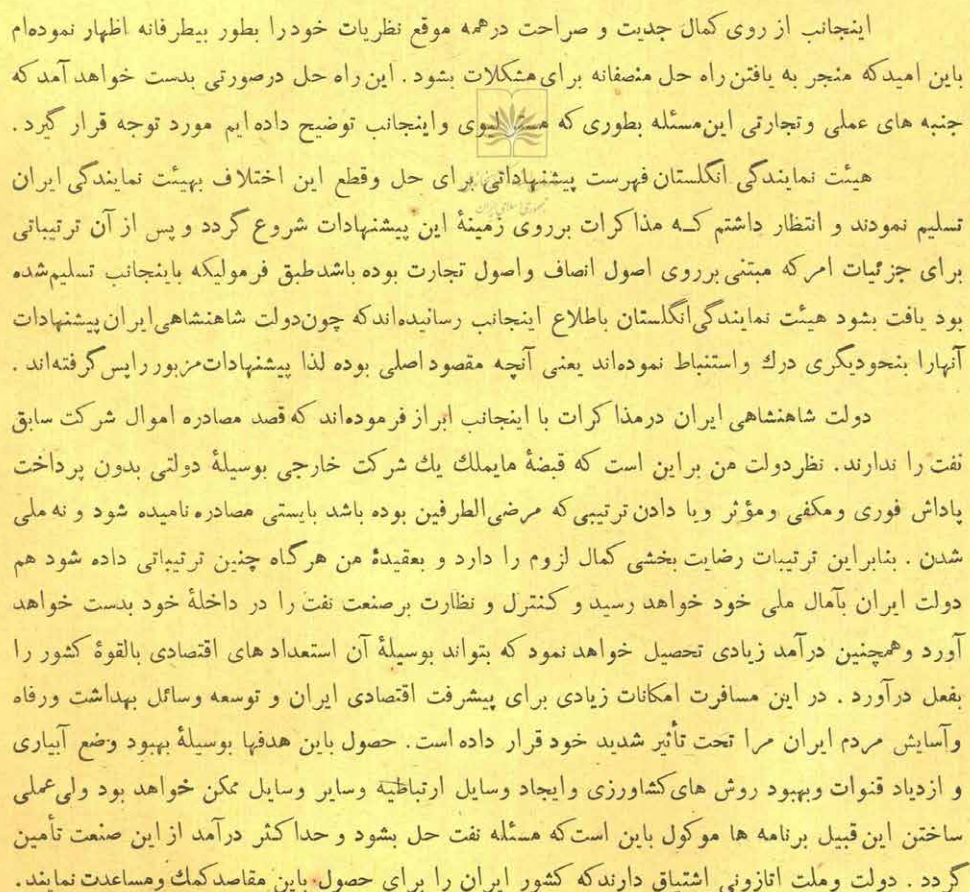 اینجانب از روی کمال جدیت و صراحت درهمه موقع نظریات خودرا بطور بیطرفانه اظهار نموده‌ام
باین امیدکه منجر به یافتن راه حل منصفانه برای مشکلات بشود . این راه حل درصورتی بدست خواهد آمدکه
جنبه های عملی وتجارتی این‌مسئله بطوری که لیوی واینجانب توضیح داده ایم مورد توجه قرار گیرد .
هیئت نمایندگی انگلستان فهرست پیشنهاداتی برای حل وقطع این اختلاف بهیئت نمایندگی ایران
تسلیم نمودند و انتظار داشتم کـه مذاکرات برروی زمینهٔ این پیشنهادات شروع گردد و پس از آن ترتیباتی
برای جزئیات امرکه مبتنی برروی اصول انصاف واصول تجارت بوده باشدطبق فرمولیکه باینجانب تسلیم‌شده
بود یافت بشود هیئت نمایندگی‌انگلستان باطلاع اینجانب رسانیده‌اندکه چون‌دولت شاهنشاهی‌ایران‌پیشنهادات
آنهارا بنحودیگری درك واستنباط نموده‌اند یعنی آنچه مقصود اصلی بوده لذا پیشنهادات‌مزبور راپس‌گرفته‌اند .
دولت شاهنشاهی ایران درمذاکرات با اینجانب ابراز فرموده‌اند که قصد مصادره اموال شرکت سابق
نفت را ندارند. نظردولت من براین است که قبضهٔ مایملك یك شرکت خارجی بوسیلهٔ دولتی بدون پرداخت
پاداش فوری ومکفی ومؤثر ویا دادن ترتیبی‌که مرضی‌الطرفین بوده باشد بایستی مصادره نامیده شود و نه ملی
شدن . بنابراین ترتیبات رضایت بخشی کمال لزوم را دارد و بعقیدهٔ من هرگاه چنین ترتیباتی داده شود هم
دولت ایران بآمال ملی خود خواهد رسید و کنترل و نظارت برصنعت نفت را در داخلهٔ خود بدست خواهد
آورد وهمچنین درآمد زیادی تحصیل خواهد نمود که بتواند بوسیلهٔ آن استعداد های اقتصادی بالقوهٔ کشور را
بفعل درآورد . در این مسافرت امکانات زیادی برای پیشرفت اقتصادی ایران و توسعه وسائل بهداشت ورفاه
وآسایش مردم ایران مرا تحت تأثیر شدید خود قرار داده است . حصول باین هدفها بوسیلهٔ بهبود وضع آبیاری
و ازدیاد قنوات وبهبود روش های‌کشاورزی وایجاد وسایل ارتباطیه وسایر وسایل ممکن خواهد بود ولی‌عملی
ساختن این قبیل برنامه ها موکول باین است‌که مسئله نفت حل بشود و حداکثر درآمد از این صنعت تأمین
گردد . دولت وملت اتازونی اشتیاق دارندکه کشور ایران را برای حصول باین مقاصدکمك ومساعدت نمایند.